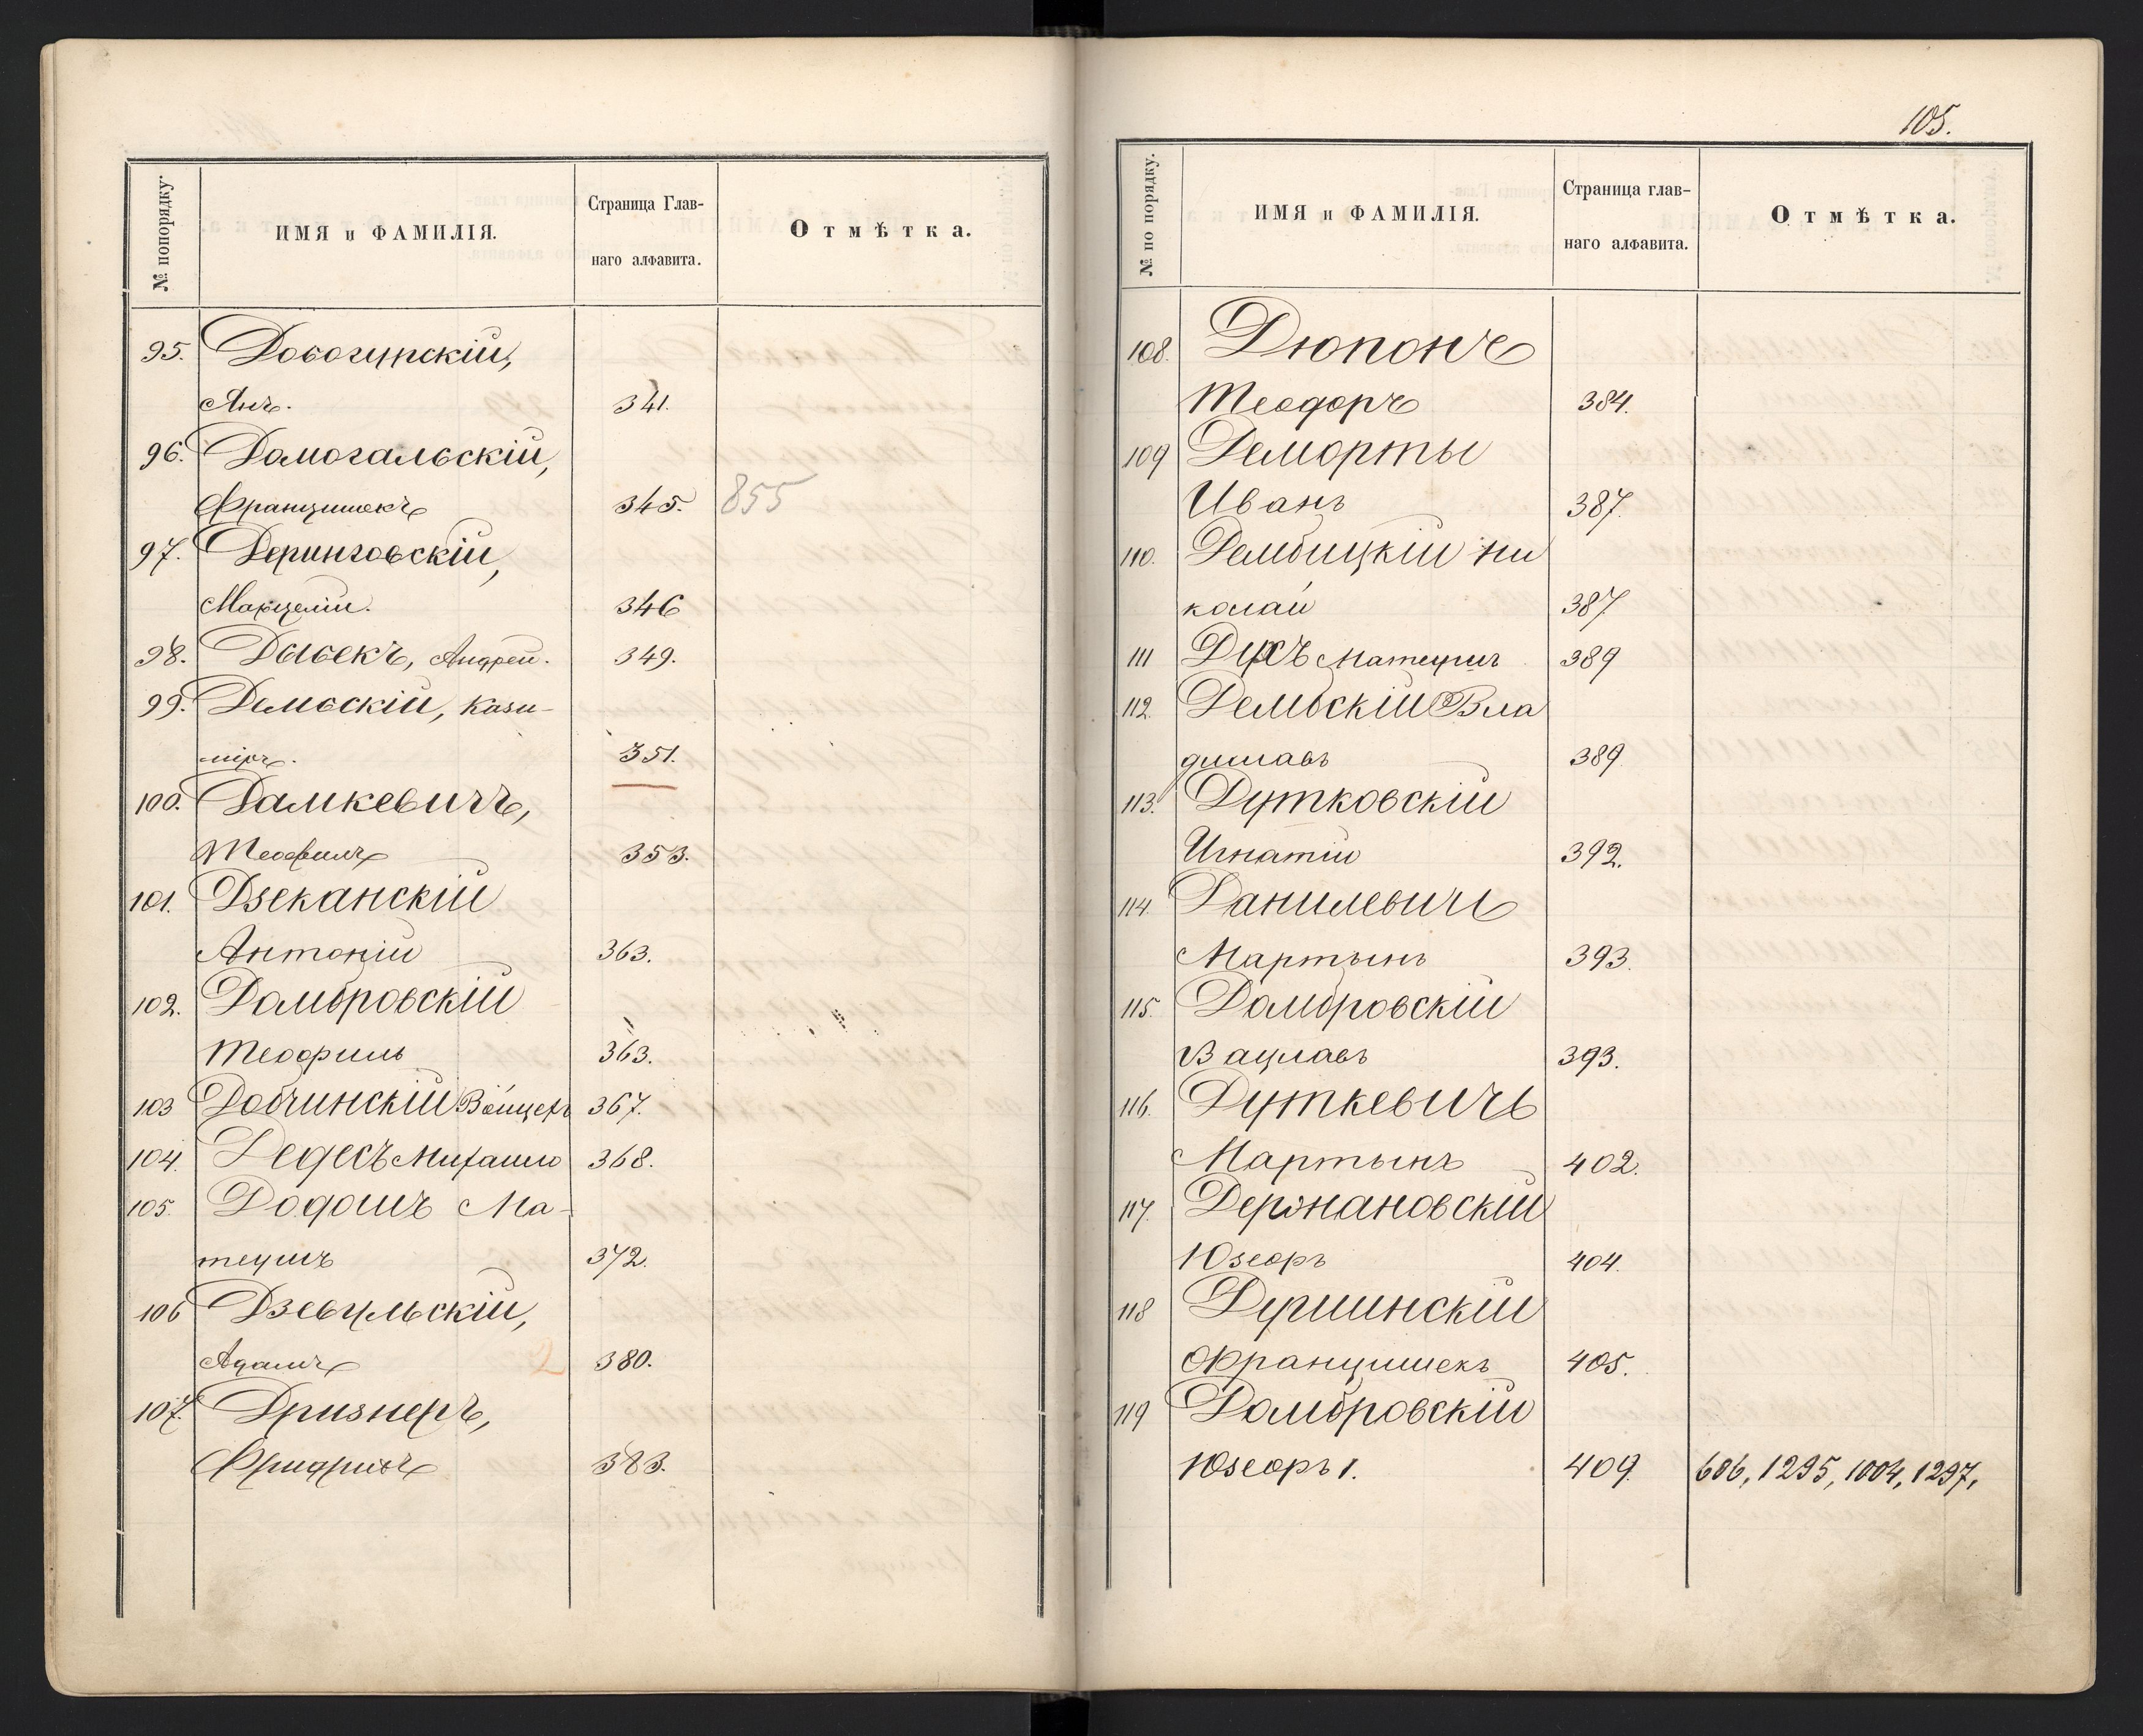 № попорядку.
ИМЯ и ФАМИЛІЯ.
Страница Глав-
наго алфавита.
Отмѣтка.
95. Довогурскій,
Янъ. 341.
96. Домогальскій,
Францишекъ 345. 855
97. Деринговскій,
Марцелій. 346
98. Дысекъ, Андрей. 349.
99. Демоскій, Кази-
міръ. 351.
100. Дамкевичъ,
Теофилъ 353.
101. Дзеканскій
Антоній 363.
102. Домбровскій
Теофиль 363.
103 Добчинскій Войцехъ 367.
104. Дедесъ Михаило 368.
105. Додошъ Ма-
теушъ 372.
106 Дзевульскій,
Адамъ 2 380.
107. Дризнеръ,
Фридрихъ 383.
105.
№ по порядку.
ИМЯ и ФАМИЛІЯ.
Страница глав-
наго алфавита.
Отмѣтка.
108. Дюпонъ
Теодоръ 384.
109 Деморты
Иванъ 387.
110. Дембицкій Ни
колай 387
111 Духъ Матеушъ 389
112. Дембскій Вла
диславъ 389
113. Дутковскій
Игнатій 392.
114. Данилевичъ
Мартынъ 393.
115. Домбровскій
Вацлавъ 393.
116. Дуткевичъ
Мартынъ 402.
117. Держановскій
Юзефъ 404.
118 Душинскій
Францишекъ 405.
119 Домбровскій
Юзефъ 1. 409. 686, 1295, 1004, 1297,